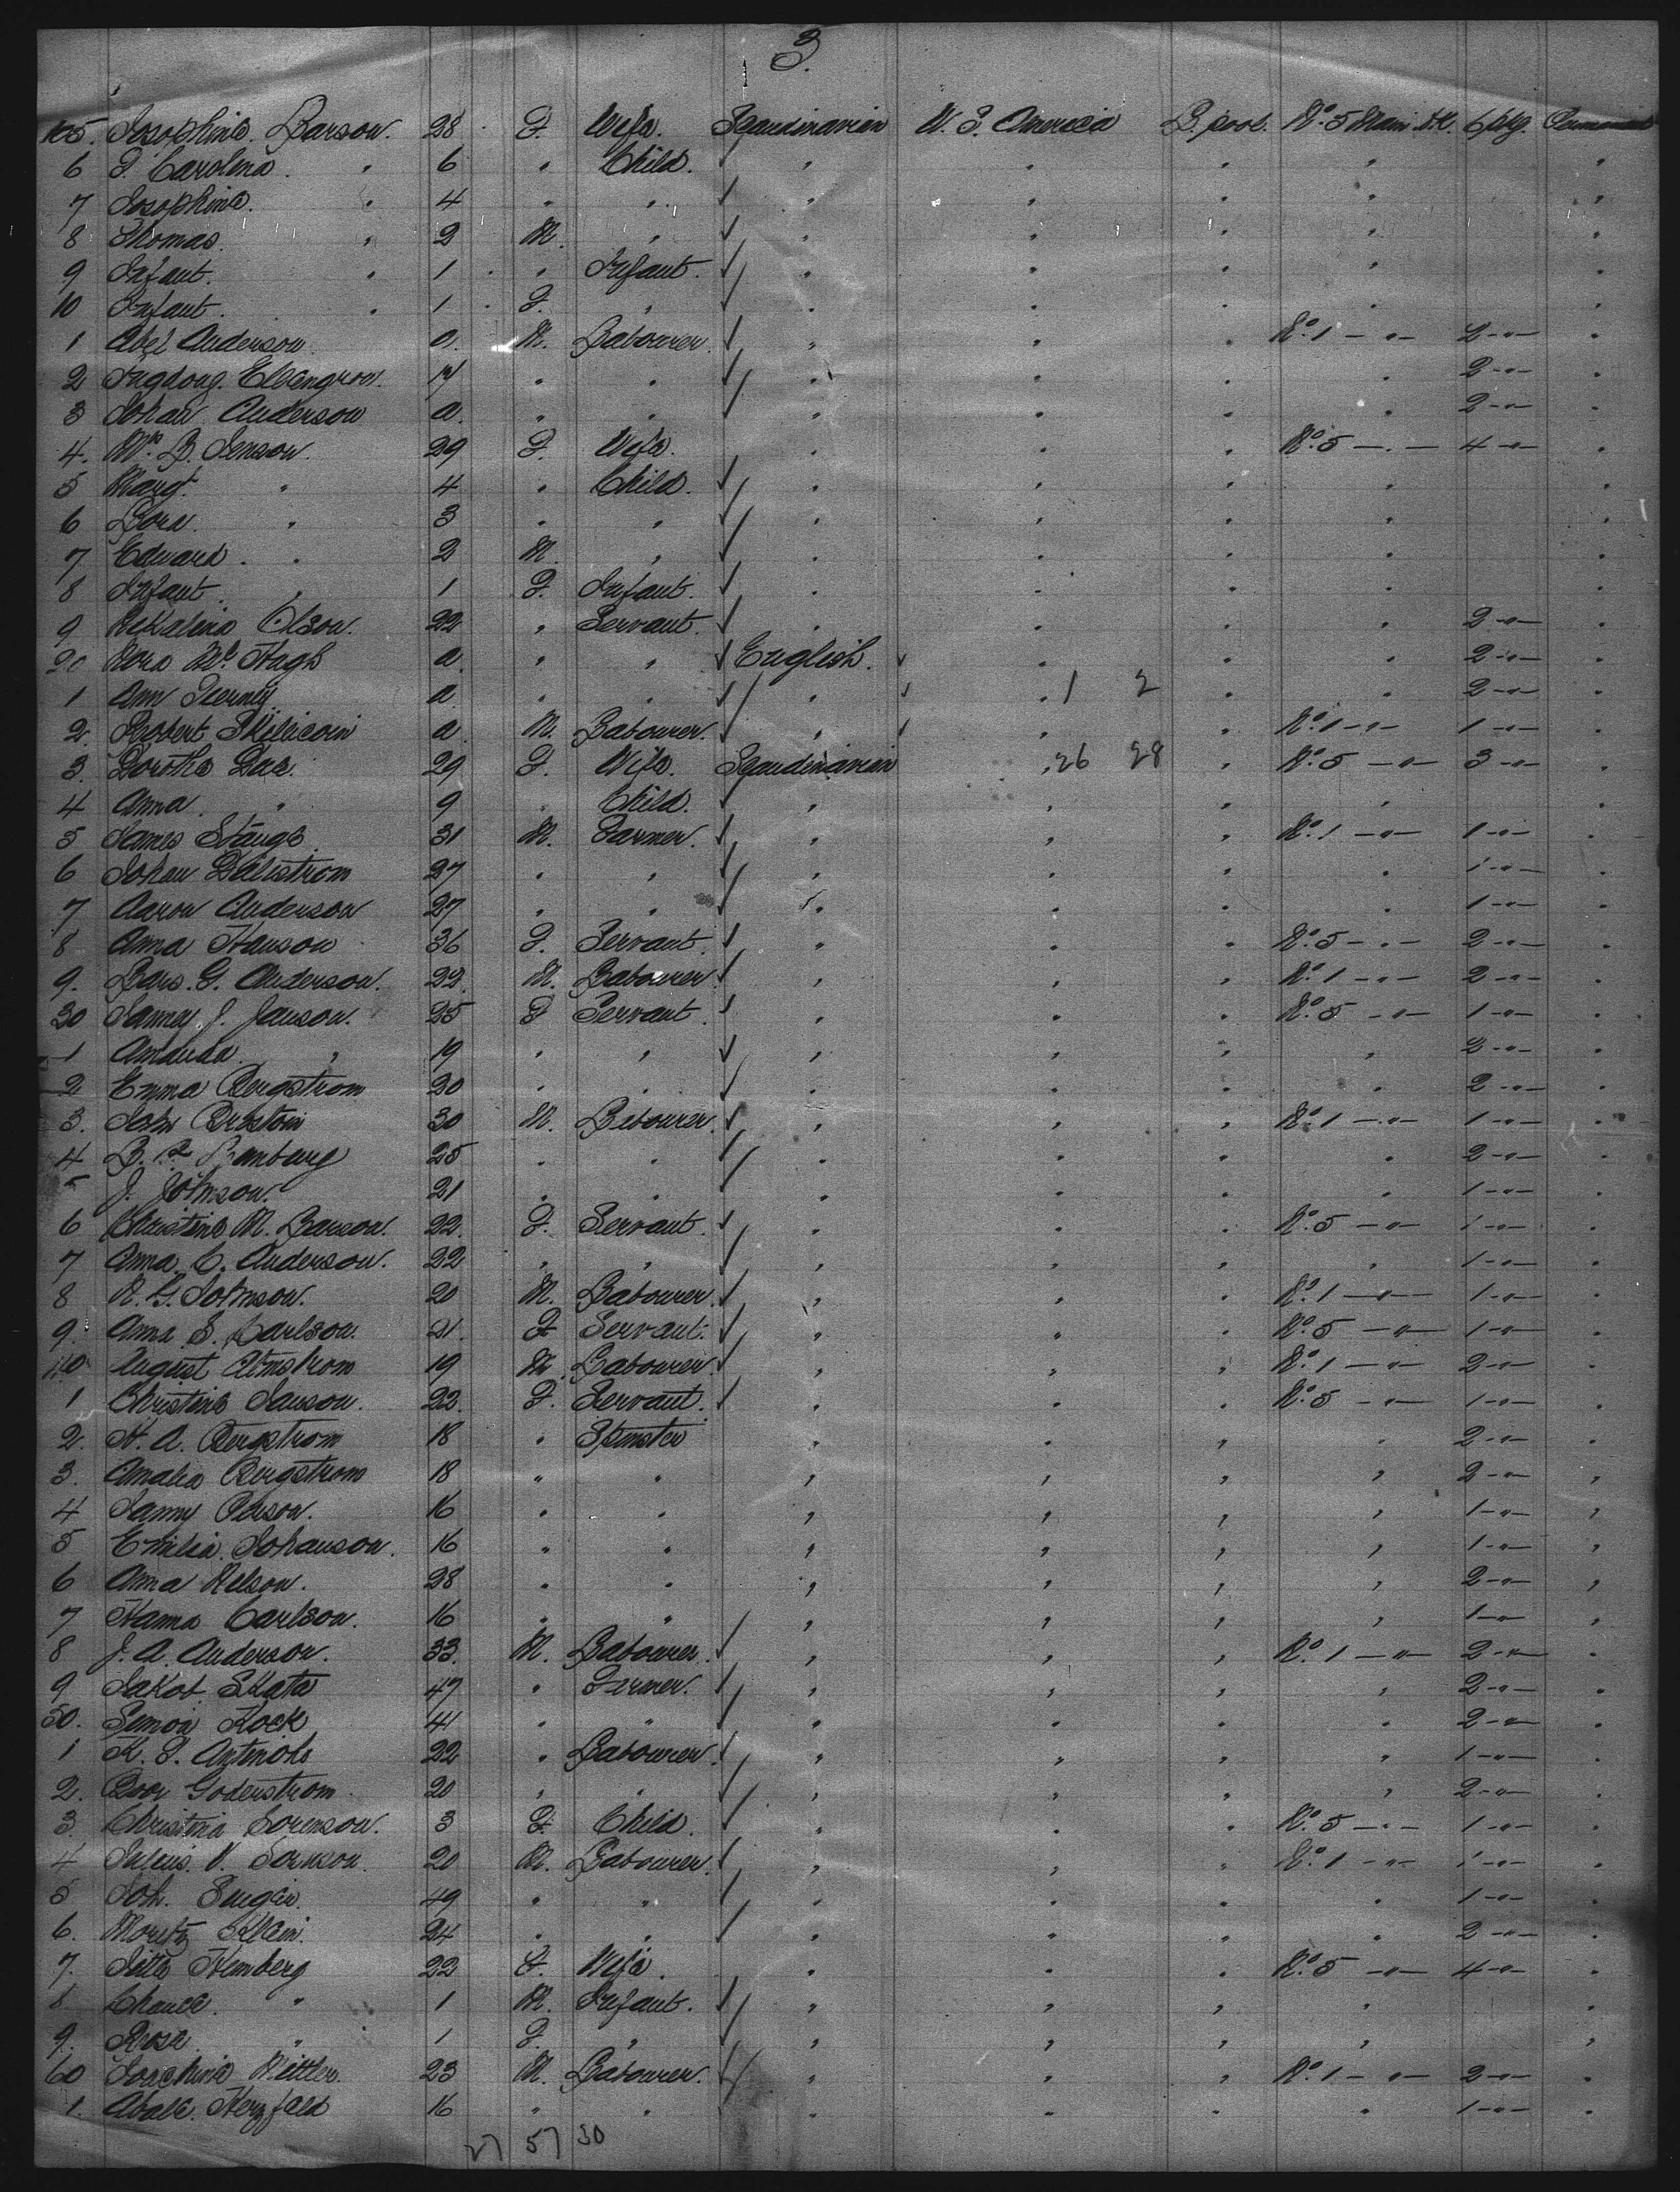 3.
105. Josephine Larson. 28 F. Wife. Scandinavian U. S. America L.pool. No. 5 Main Dk. 6 pkg.
6 I. Carolina. " 6 " Child. " " " " "
7 Josephine. " 4 " " " " " " "
8 Thomas. " 2 M. " " " " " "
9 Infant. " 1 " Infant. " " " " "
10 Infant. " 1 F. " " " " " "
1 Abel Anderson a. M. Labourer. " " " No. 1 - " - 2 - " - "
2 17 " " " " " " 2 - " - "
3 Johan Anderson a " " " " " " 2 - " - "
4. Mrs. B. Jenson. 29 F. Wife. " " " No. 5 - " - 4 - " - "
5 Margt. " 4 " Child. " " " " "
6 Lora. " 3 " " " " " " "
7 Edward. " 2 M. " " " " " "
8 Infant. " 1 F. Infant. " " " " "
9 Olson. 22 " Servant. " " " " 2 - " - "
20 Nora a " " English. " " " 2 - " - "
1 Ann a " " " " 1 2 " " 2 - " - "
2. Robert a M. Labourer. " " " No. 1 - " - 1 - " - "
3. 29 F. Wife. Scandinavian " 26 28 " No. 5 - " - 3 - " - "
4 Anna. " 9 " Child. " " " " "
5 James 31 M. Farmer. " " " No. 1 - " - 1 - " - "
6 Johan 27 " " " " " " 1 - " - "
7 Aaron Anderson 27 " " " " " " 1 - " - "
8 Anna Hanson 36 F. Servant. " " " No. 5 - " - 2 - " - "
9. Lars. G. Anderson. 22. M. Labourer. " " " No. 1 - " - 2 - " - "
30 J. Janson. 25 F Servant. " " " No. 5 - " - 1 - " - "
1 Amanda. " 19 " " " " " " 2 - " - "
2 Emma Bergstrom 20 " " " " " " 2 - " - "
3. John 30 M. Labourer. " " " No. 1 - " - 1 - " - "
4 25 " " " " " " 2 - " - "
5 J. Johnson. 21 " " " " " " 1 - " - "
6 Christine M. Larson. 22. F. Servant. " " " No. 5 - " - 1 - " - "
7 Anna C. Anderson. 22 " " " " " " 1 - " - "
8 N. G. Johnson. 20 M. Labourer. " " " No. 1 - " - 1 - " - "
9. Anna S. Carlson. 21. F Servant. " " " No. 5 - " - 1 - " - "
140 August Almstrom 19 M. Labourer. " " " No. 1 - " - 2 - " - "
1 Christine Janson. 22. F. Servant. " " " No. 5 - " - 1 - " - "
2. H. A. Bergstrom 18 " Spinster " " " " 2 - " - "
3. Amalia Bergstrom 18 " " " " " " 2 - " - "
4 16 " " " " " " 1 - " - "
5 Emilia Johanson. 16 " " " " " " 1 - " - "
6 Anna Nelson. 28 " " " " " " 2 - " - "
7 Hanna Carlson. 16 " " " " " " 1 - " - "
8 J. A. Anderson. 33. M. Labourer. " " " No. 1 - " - 2 - " - "
9 Jakob Skata 47 " Farmer. " " " " 2 - " - "
50. Simon Kock 41 " " " " " " 2 - " - "
1 K. J. 22 " Labourer. " " " " 1 - " - "
2. 20 " " " " " " 2 - " - "
3. Christina Sorenson. 3 F. Child. " " " No. 5 - " - 1 - " - "
4 20 M. Labourer. " " " No. 1 - " - 1 - " - "
5 Joh. 49 " " " " " " 1 - " - "
6. Moritz Klein. 24 " " " " " " 2 - " - "
7. Hemberg 22 F. Wife. " " " No. 5 - " - 4 - " - "
8 " 1 M. Infant. " " " " "
9. Rosa. " 1 F. " " " " " "
60 23 M. Labourer. " " " No. 1 - " - 2 - " - "
1. Herzfeld 16 " " " " " " 1 - " - "
27 57 30